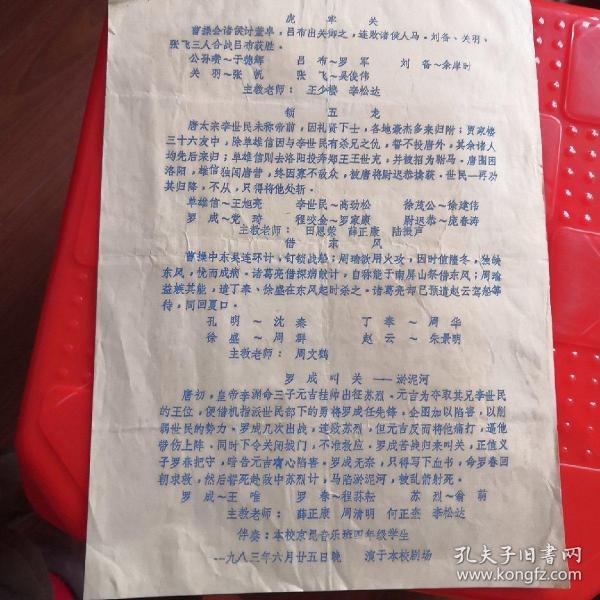 虎 牢 关
曹操会诸侯讨董卓，吕布出关御之，连败诸侯人马。刘备、关羽、
张飞三人合战吕布获胜。
公孙瓒～于德辉 吕 布～罗 军 刘 备～余岸时
关 羽～张 帆 张 飞～吴俊伟
主教老师： 王少楼 李松达
锁 五 龙
唐太宗李世民未称帝前，因礼贤下士，各地豪杰多来归附；贾家楼
三十六友中，除单雄信因与李世民有杀兄之仇，誓不投唐外，其余诸人
均先后来归；单雄信则去洛阳投奔郑王王世充，并被招为驸马。唐围困
洛阳，雄信独闯唐营，终因寡不敌众，被唐将尉迟恭擒获。世民一再劝
其归降，不从，只得将他处斩。
单雄信～王旭亮 李世民～高劲松 徐茂公～徐建伟
罗 成～党 琦 程咬金～罗家康 尉迟恭～庞春涛
主教老师： 田恩荣 薛正康 陆振声
借 东 风
曹操中东吴连环计，钉锁战船；周瑜欲用火攻，因时值隆冬，独缺
东风，忧而成病。诸葛亮借探病献计，自称能于南屏山祭借东风；周瑜
益嫉其能，遣丁奉、徐盛在东风起时杀之。诸葛亮却已预遣赵云驾船等
待，同回夏口。
孔 明～沈 泰 丁 奉～周 华
徐 盛～周 群 赵 云～朱景明
主教老师： 周文鹤
罗 成 叫 关 ——淤泥河
唐初，皇帝李渊命三子元吉挂帅出征苏烈。元吉为夺取其兄李世民
的王位，便借机指派世民部下的勇将罗成任先锋，企图加以陷害，以削
弱世民的势力。罗成几次出战，连败苏烈，但元吉反而将他痛打，逼他
带伤上阵。同时下令关闭城门，不准救应。罗成苦战归来叫关，正值义
子罗春把守，暗告元吉有心陷害。罗成无奈，只得写下血书，命罗春回
朝求救，然后誓死赴敌中苏烈计，马陷淤泥河，被乱箭射死。
罗 成～王 唯 罗 春～程苏耘 苏 烈～翁 萌
主教老师： 薛正康 周清明 何正杰 李松达
伴奏：本校京昆音乐班四年级学生
一九八三年六月廿五日晚 演于本校剧场
孔夫子旧书网
www.kongfz.com